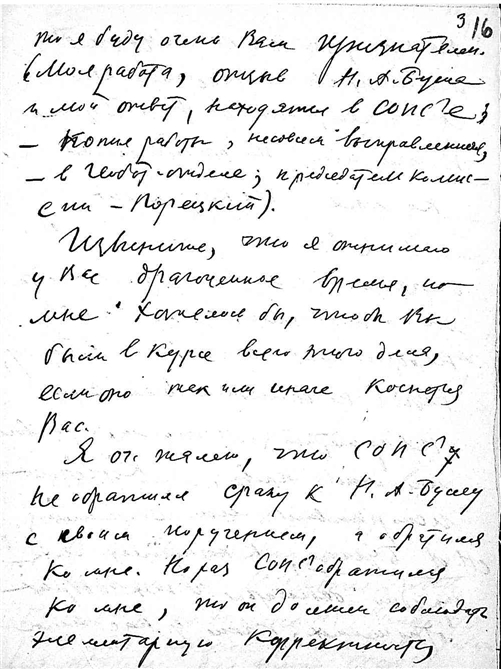 3/6
то я буду очень Вам признателен.
(Моя работа, отзыв Н.А. Буша
и мой ответ, находятся в СОПС'е;
– Копия работы, не совсем выправленная,
– в Геобот. отделе; председатель комис-
сии – Порецкий).
Извините, что я отнимаю
у Вас драгоценное время, но
мне хотелось бы, чтобы Вы
были в курсе всего этого дела,
если оно так или иначе коснется
Вас.
Я оч. жалею, что СОПС'
не обратился сразу к Н.А. Бушу
с своим поручением, а обратился
ко мне. Но раз СОПС обратился
ко мне, то он должен соблюдать
элементарную корректность